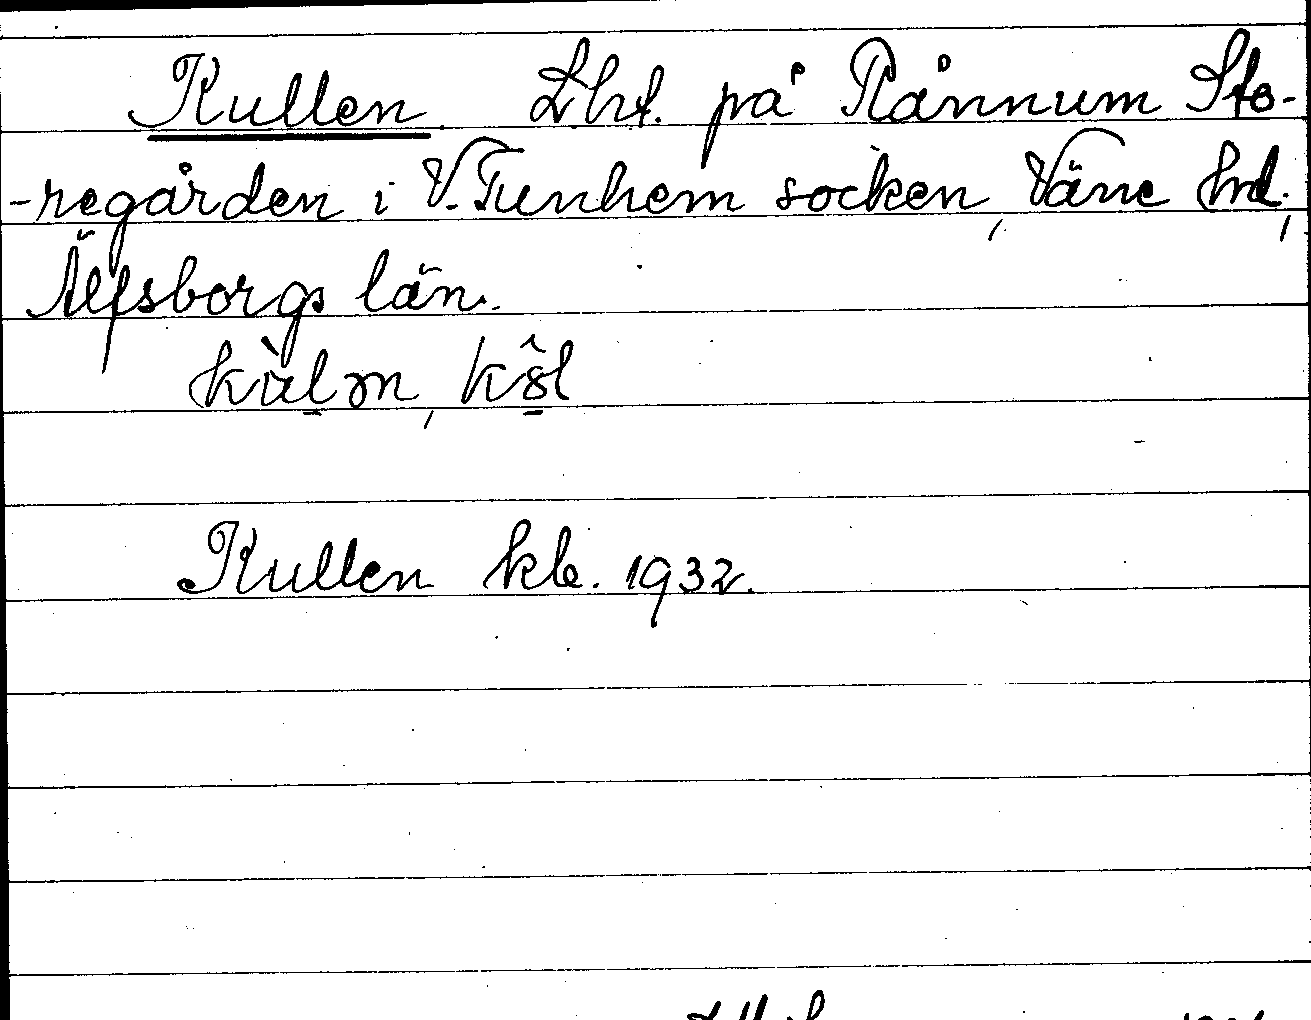 Kullen. Lht. på Rånnum Sto-
-regården i V. Tunhem socken, Väne hd.,
Älfsborgs län.
Kullen kle. 1932.